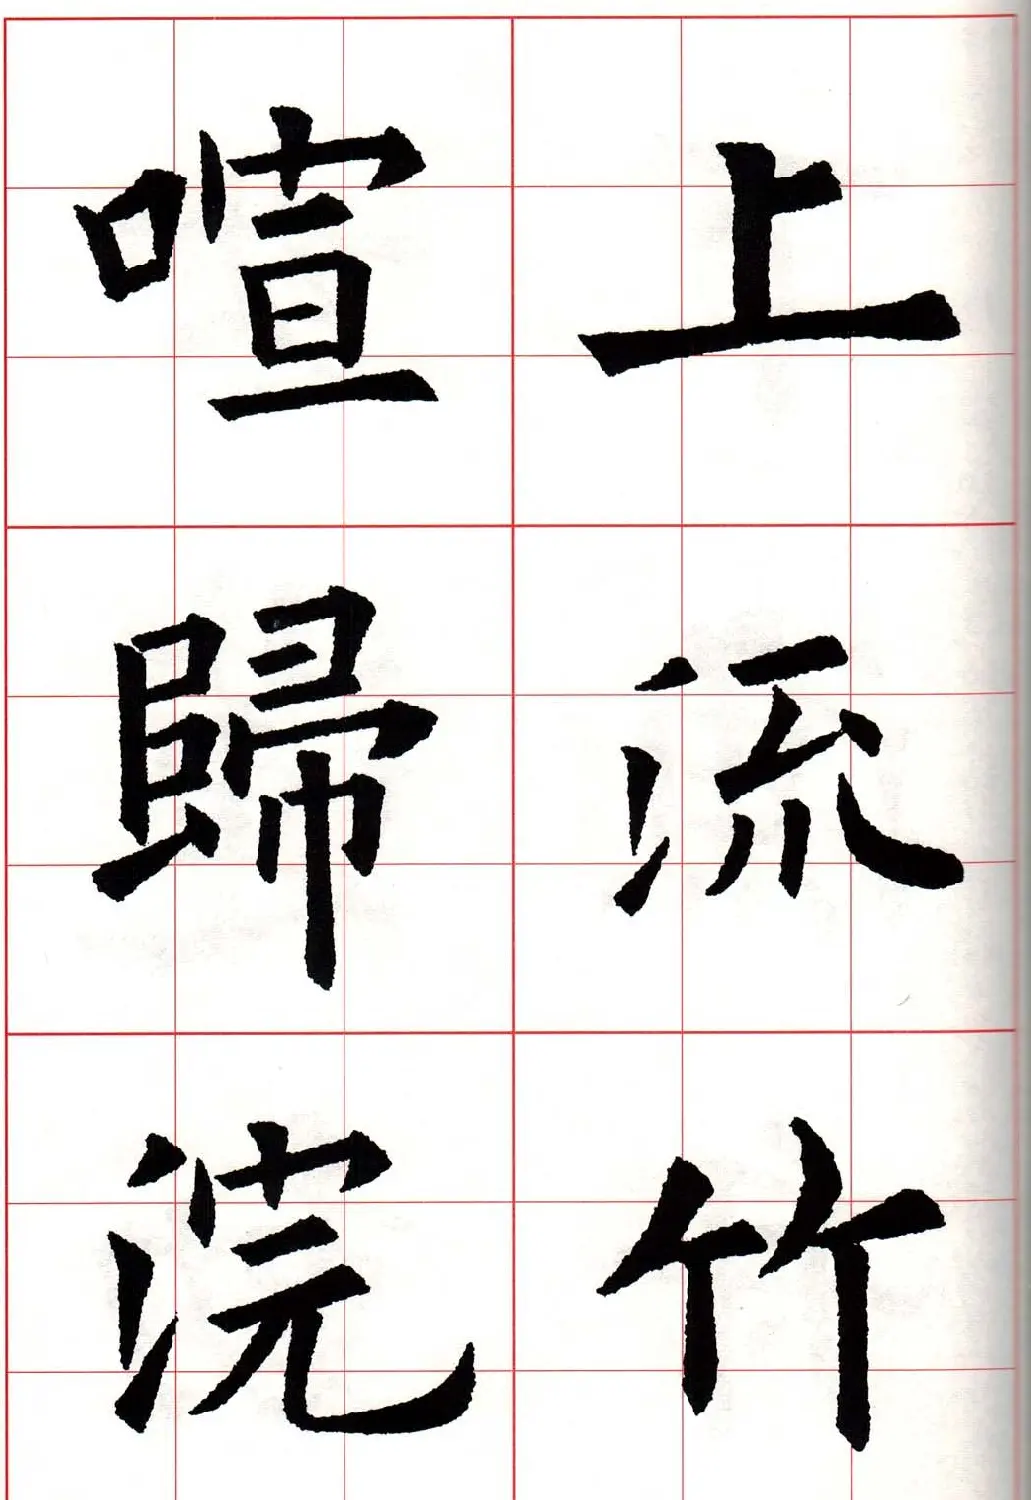 上流竹
喧歸浣